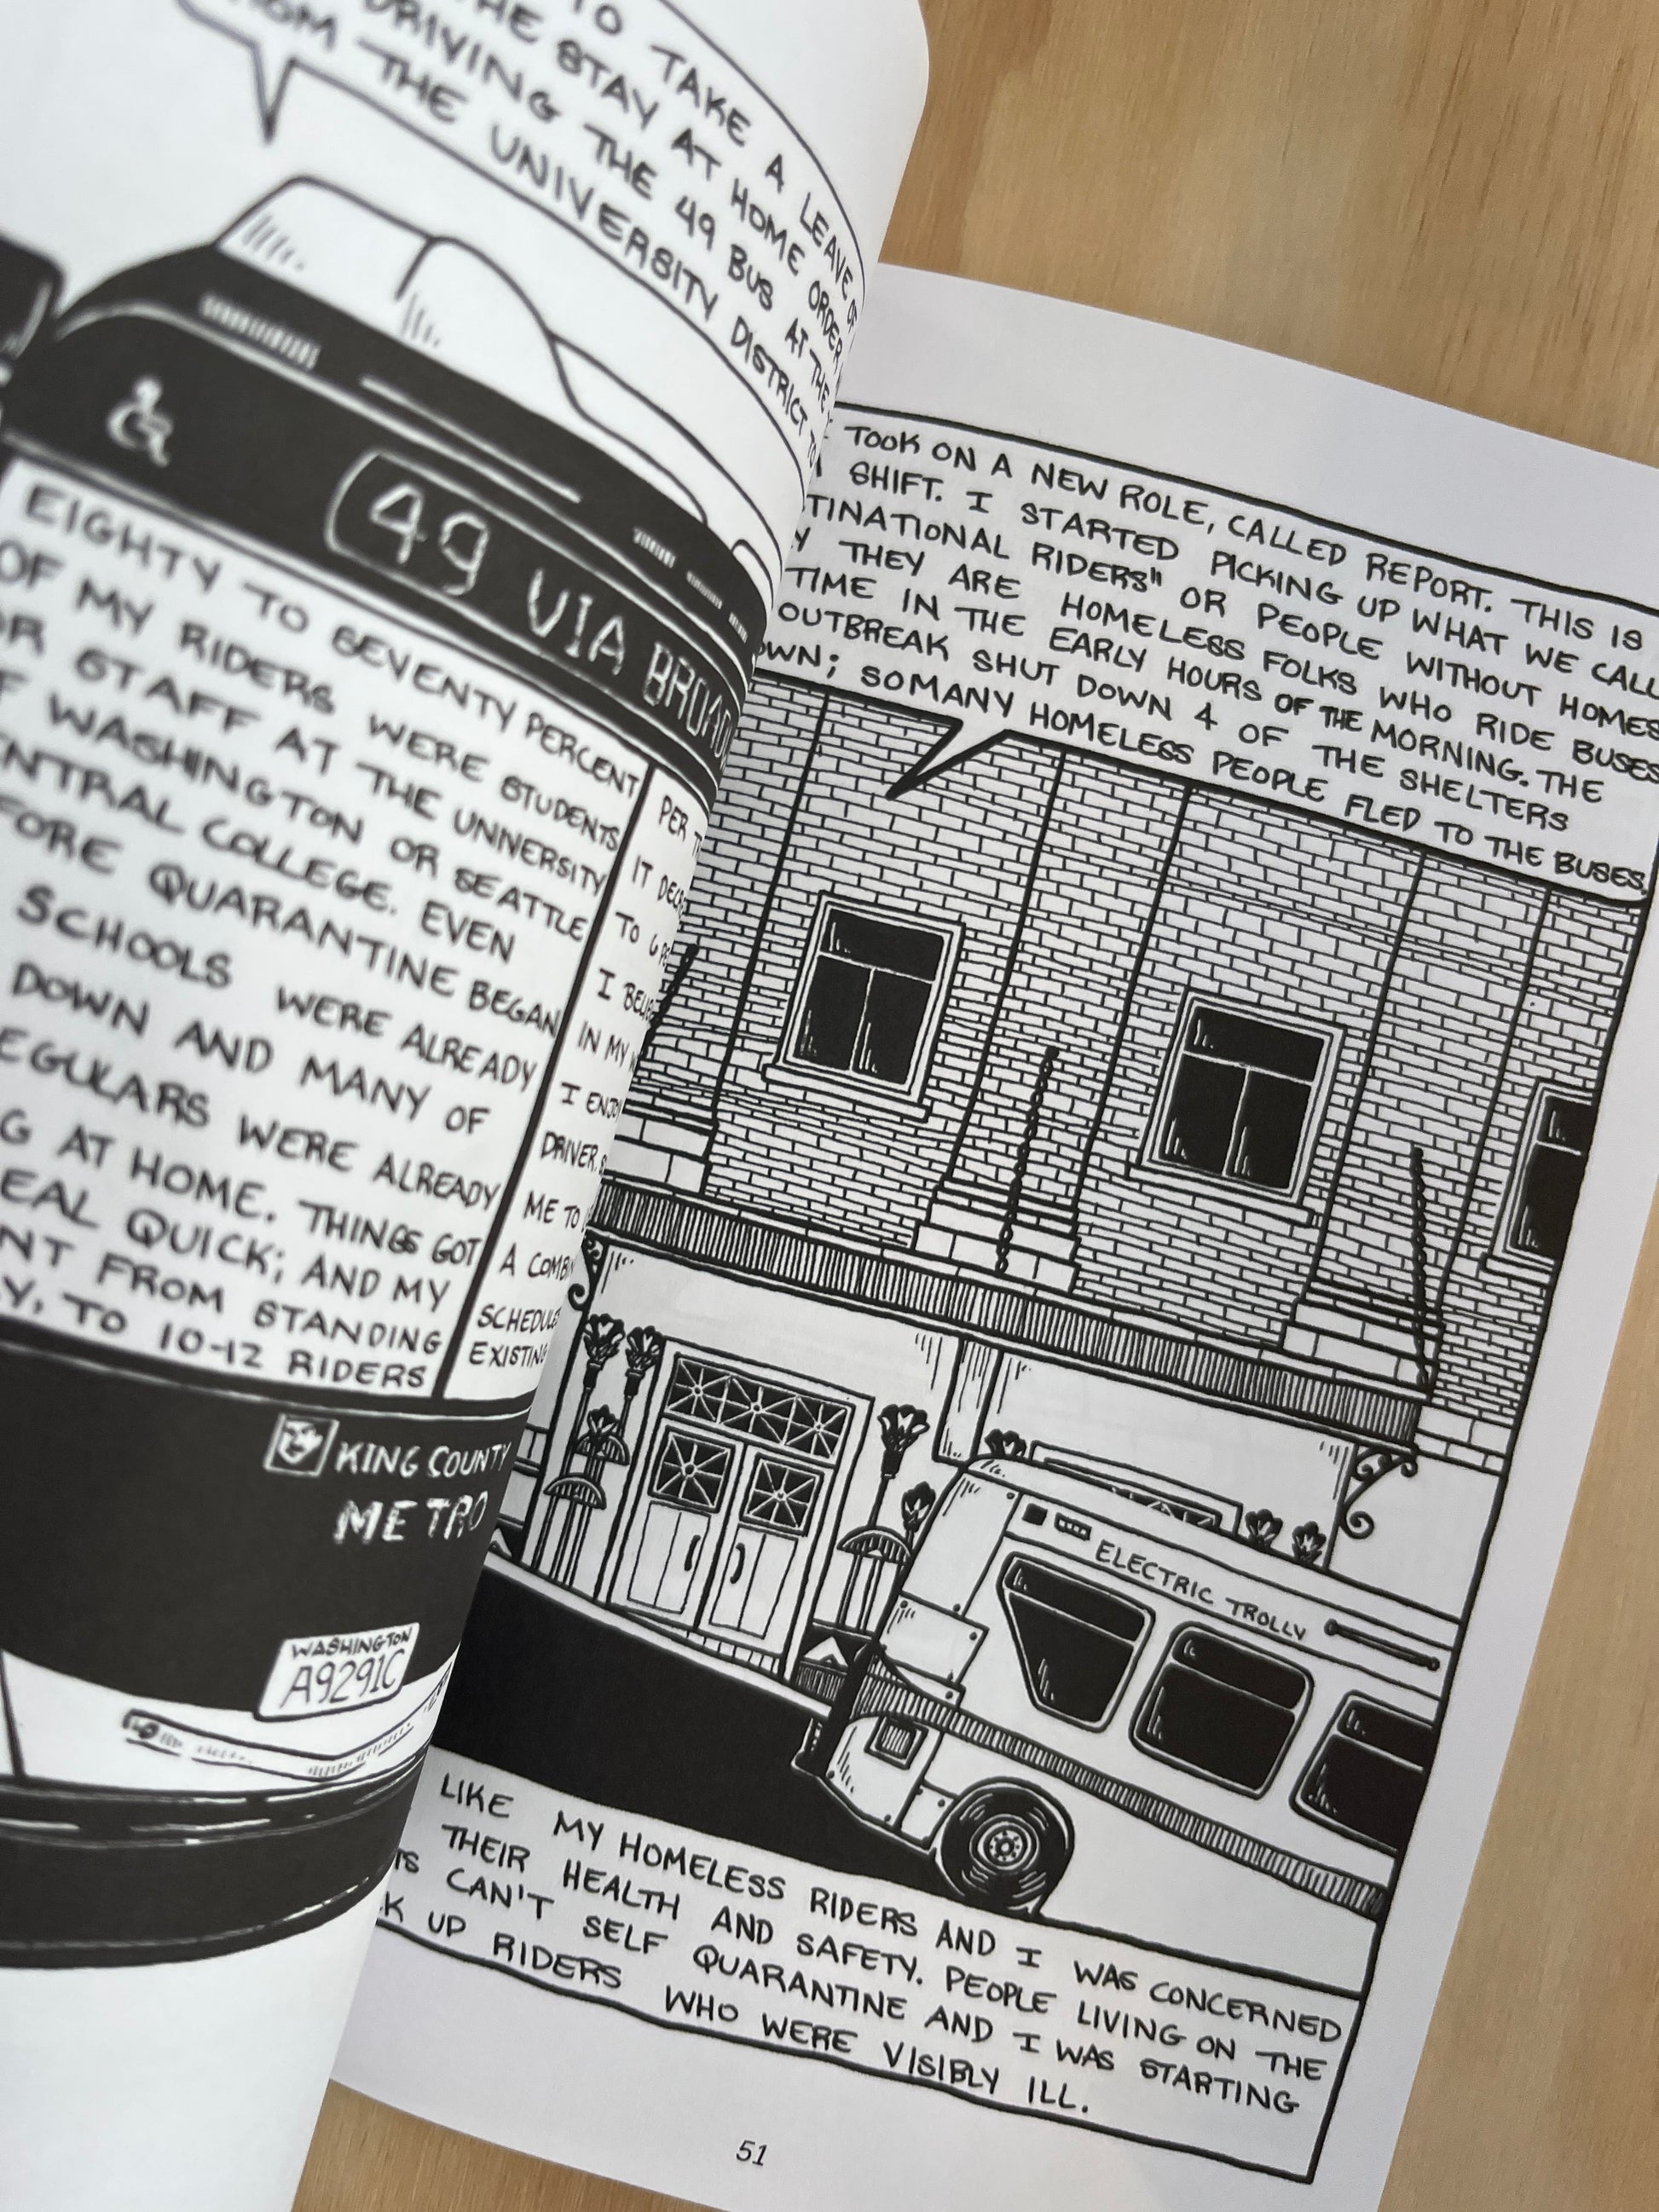 TO TAKE A LEAVE OF
THE STAY AT HOME ORDER
DRIVING THE 49 BUS AT THE
THE UNIVERSITY DISTRICT TO
49 VIA
EIGHTY TO SEVENTY PERCENT
OF MY RIDERS WERE STUDENTS
STAFF AT THE UNIVERSITY
WASHINGTON OR SEATTLE
COLLEGE. EVEN
QUARANTINE BEGAN
SCHOOLS WERE ALREADY
DOWN AND MANY OF
WERE ALREADY
AT HOME. THINGS GOT
QUICK; AND MY
FROM STANDING
TO 10-12 RIDERS
PER
IT
TO 6
I
IN MY
I
DRIVER.
ME TO
A
KING COUNTY
METRO
WASHINGTON
A9291C
TOOK ON A NEW ROLE, CALLED REPORT. THIS IS
SHIFT. I STARTED PICKING UP WHAT WE CALL
RIDERS" OR PEOPLE WITHOUT HOMES
THEY ARE HOMELESS FOLKS WHO RIDE BUSES
TIME IN THE EARLY HOURS OF THE MORNING. THE
OUTBREAK SHUT DOWN 4 OF THE SHELTERS
SO MANY HOMELESS PEOPLE FLED TO THE BUSES.
ELECTRIC TROLLY
LIKE MY HOMELESS RIDERS AND I WAS CONCERNED
THEIR HEALTH AND SAFETY. PEOPLE LIVING ON THE
CAN'T SELF QUARANTINE AND I WAS STARTING
UP RIDERS WHO WERE VISIBLY ILL.
51